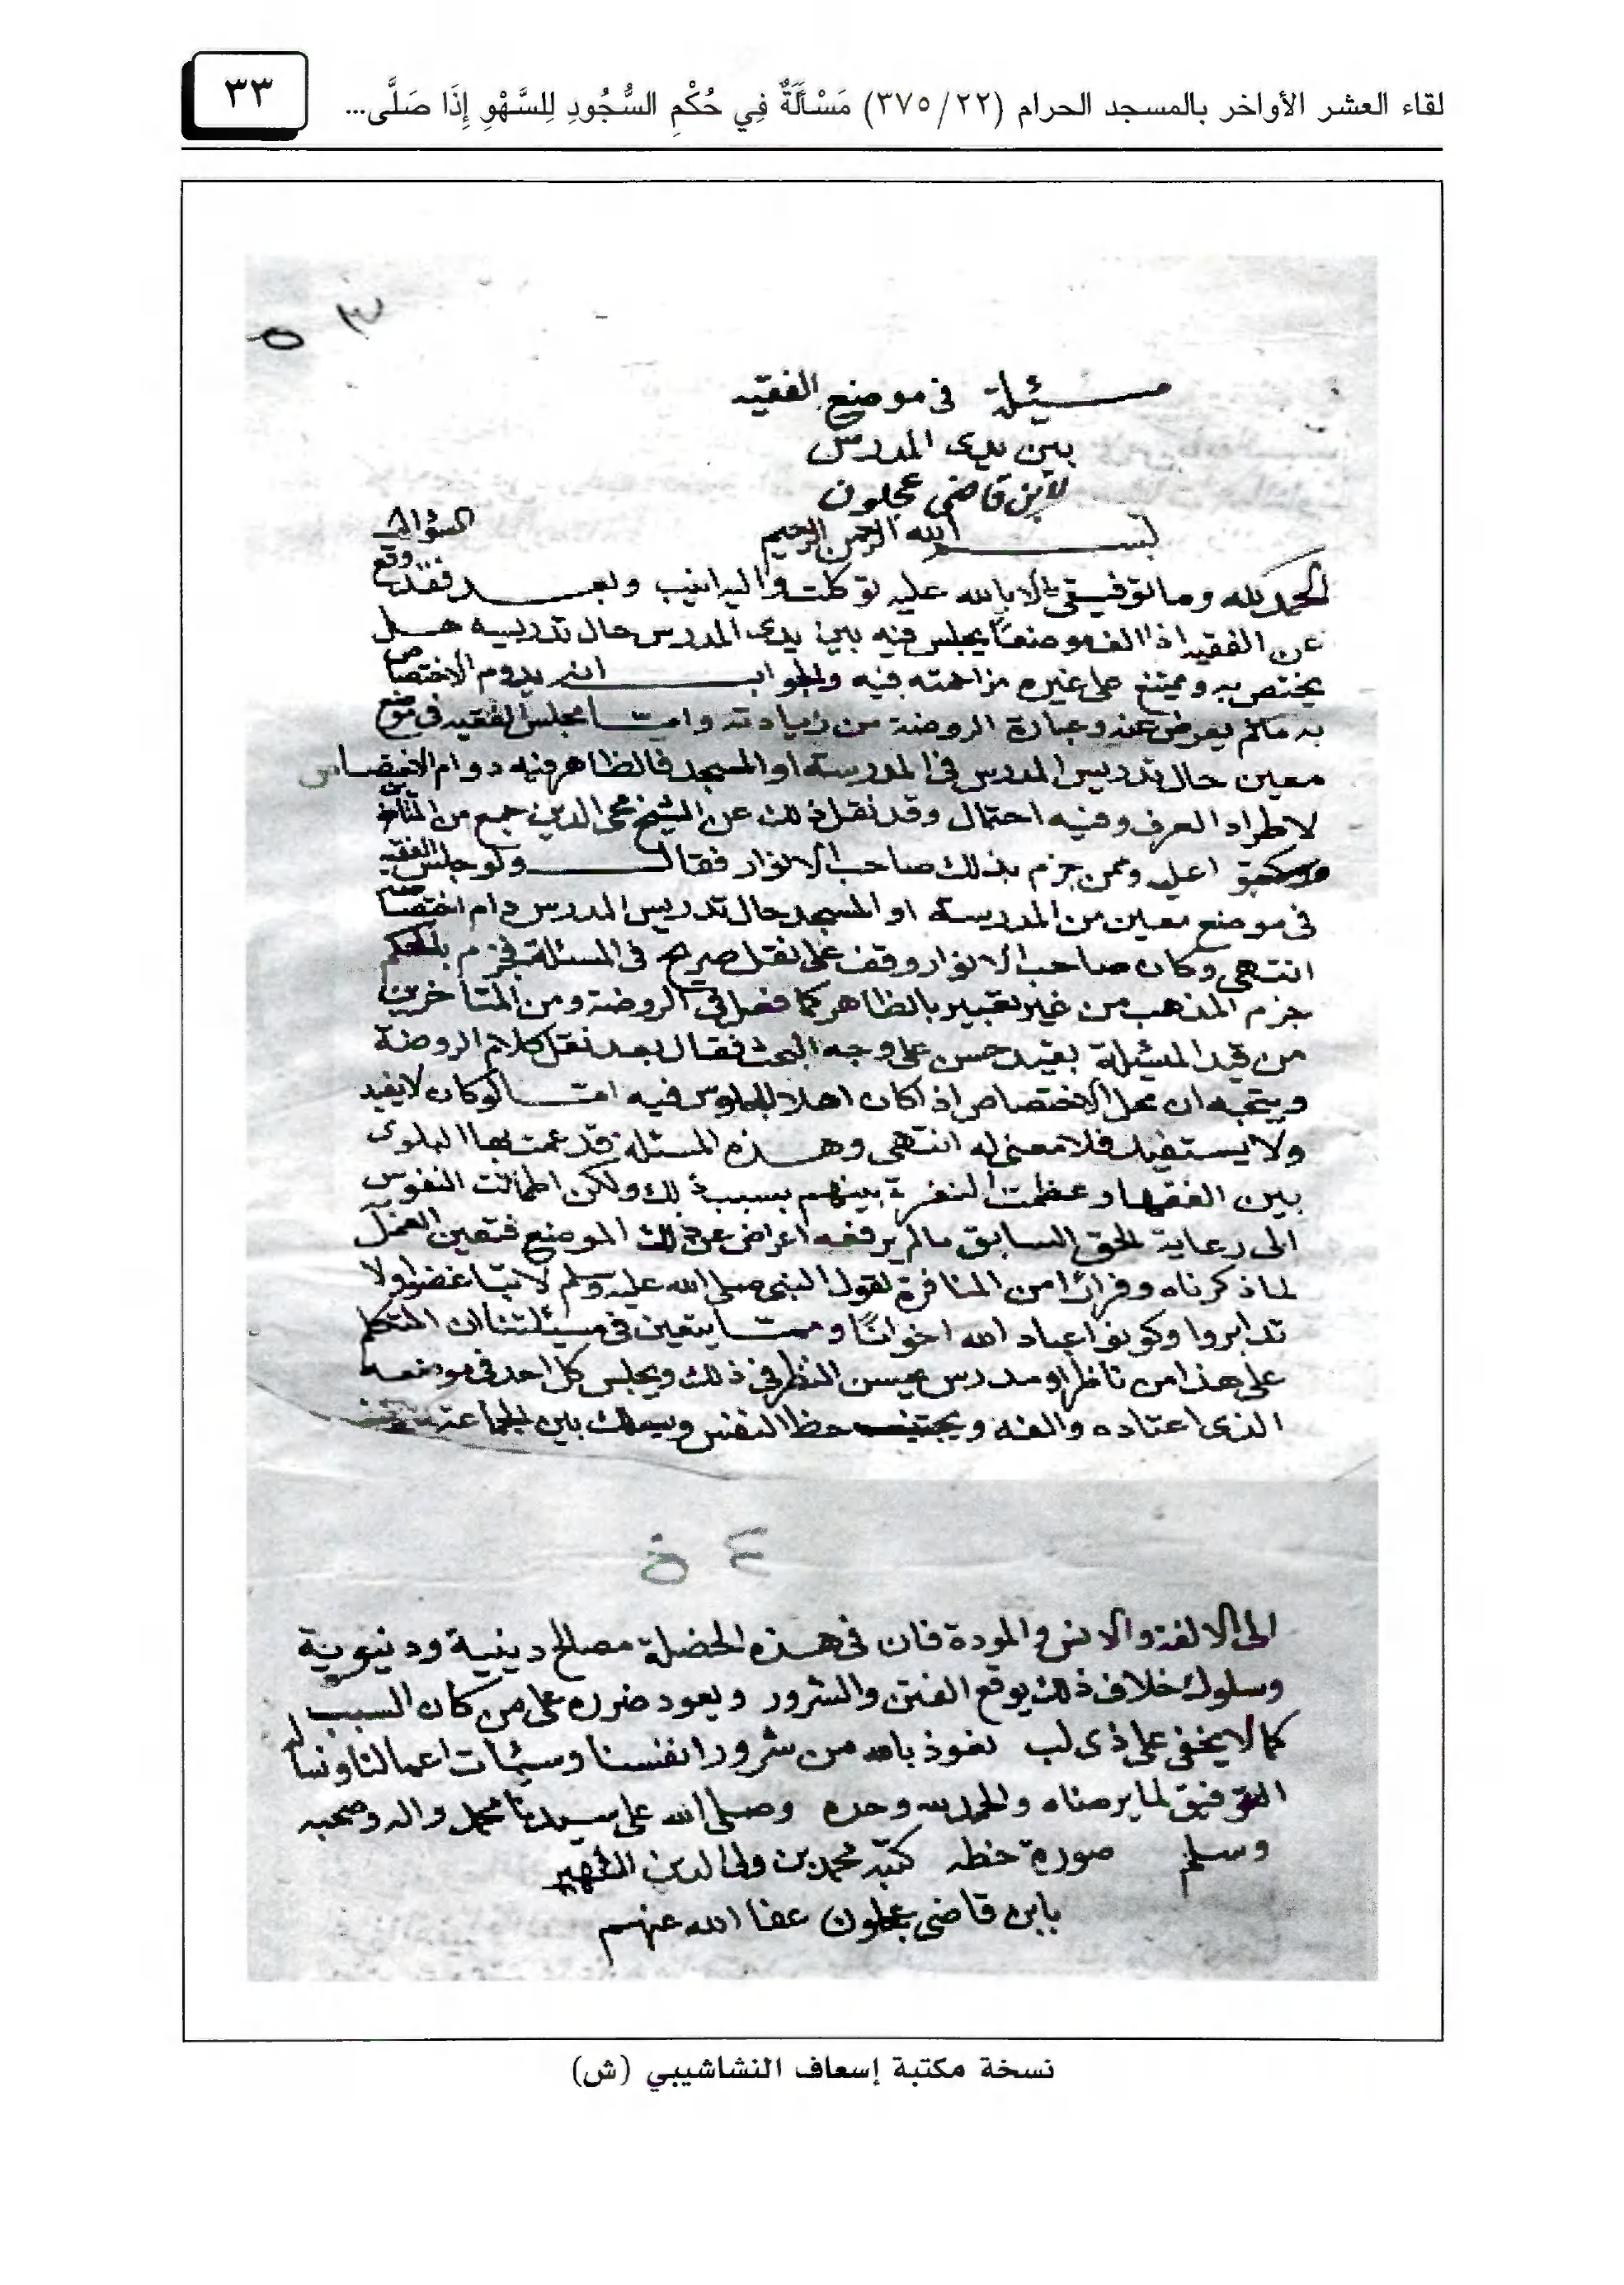 لقاء العشر الأواخر بالمسجد الحرام (٣٧٥/٢٢) مَسْأَلَةٌ فِي حُكْمِ السُّجُودِ لِلسَّهْوِ إِذَا صَلَّى...
٣٣
٥٣
مسئلة في موضع الفقيه
بين يدى المدرس
لابن قاضي عجلون
بسم الله الرحمن الرحيم
الحمد لله وما توفيقي الا بالله عليه توكلت واليه انيب وبعد فقد وقع السؤال
عن الفقيه اذا الف موضعا يجلس فيه بين يدى المدرس حال تدريسه هل
يختص به ويمتنع على غيره مزاحمته فيه والجواب انه يدوم الاختصاص
به مالم يعرض عنه وعبارة الروضة من زيادته وامـا مجلس الفقيه في موضع
معين حال تدريس المدرس في المدرسة او المسجد فالظاهر فيه دوام الاختصاص
لاطراد العرف وفيه احتمال وقد نقل ذلك عن الشيخ محى الدين جمع من
اعليه وممن جزم بذلك صاحب الانوار فقال ولو جلس الفقيه
في موضع معين من المدرسة او المسجد حال تدريس المدرس دام اختصاصه
انتهى وكان صاحب الانوار وقف على نقل صريح في المسئلة فجزم بالحكم
جزم المذهب من غير تعبير بالظاهر كما فعل في الروضة ومن المتأخرين
من قيد المسئلة بقيد حسن على وجه البحث فقال بعد نقل كلام الروضة
ويتجه ان محل الاختصاص اذا كان اهلا للجلوس فيه امـا لو كان لا يفيد
ولا يستفيد فلا معنى له انتهى وهذه المسئلة قد عمت بها البلوى
بين الفقها وعظمت النفرة بينهم بسبب ذلك ولكن اطمأنت النفوس
الى رعاية الحق السابق مالم يرفعه اعراض عن ذلك الموضع فتعين العمل
لما ذكرناه وفرارًا من المنافرة لقول النبي صلى الله عليه وسلم لا تباغضوا ولا
تدابروا وكونوا عباد الله اخوانًا وممـا يتعين في مسئلتنا ان المتكلم
على هذا من ناظر او مدرس يحسن النظر في ذلك ويجلس كل احد في موضعه
الذى اعتاده والفه ويجتنب حظ النفس ويسلك بين الجماعة
٥٤
الى الالفة والانس والمودة فان في هذه الخصلة مصالح دينية ودنيوية
وسلوك خلاف ذلك يوقع الفتن والشرور ويعود ضرره على من كان السبب
كما لا يخفى على ذى لب نعوذ بالله من شرور انفسنا وسيئات اعمالنا ونساله
التوفيق لما يرضاه والحمد لله وحده وصلى الله على سيدنا محمد واله وصحبه
وسلم صورة خطه كتبه محمد بن ولى الدين الشهير
بابن قاضى عجلون عفا الله عنهم
نسخة مكتبة إسعاف النشاشيبي (ش)